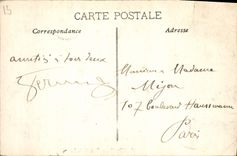 13
CARTE POSTALE
Correspondance
Adresse
amitiés à tous deux
Fernand
Monsieur & Madame
Méjon
107 Boulevard Haussmann
Paris